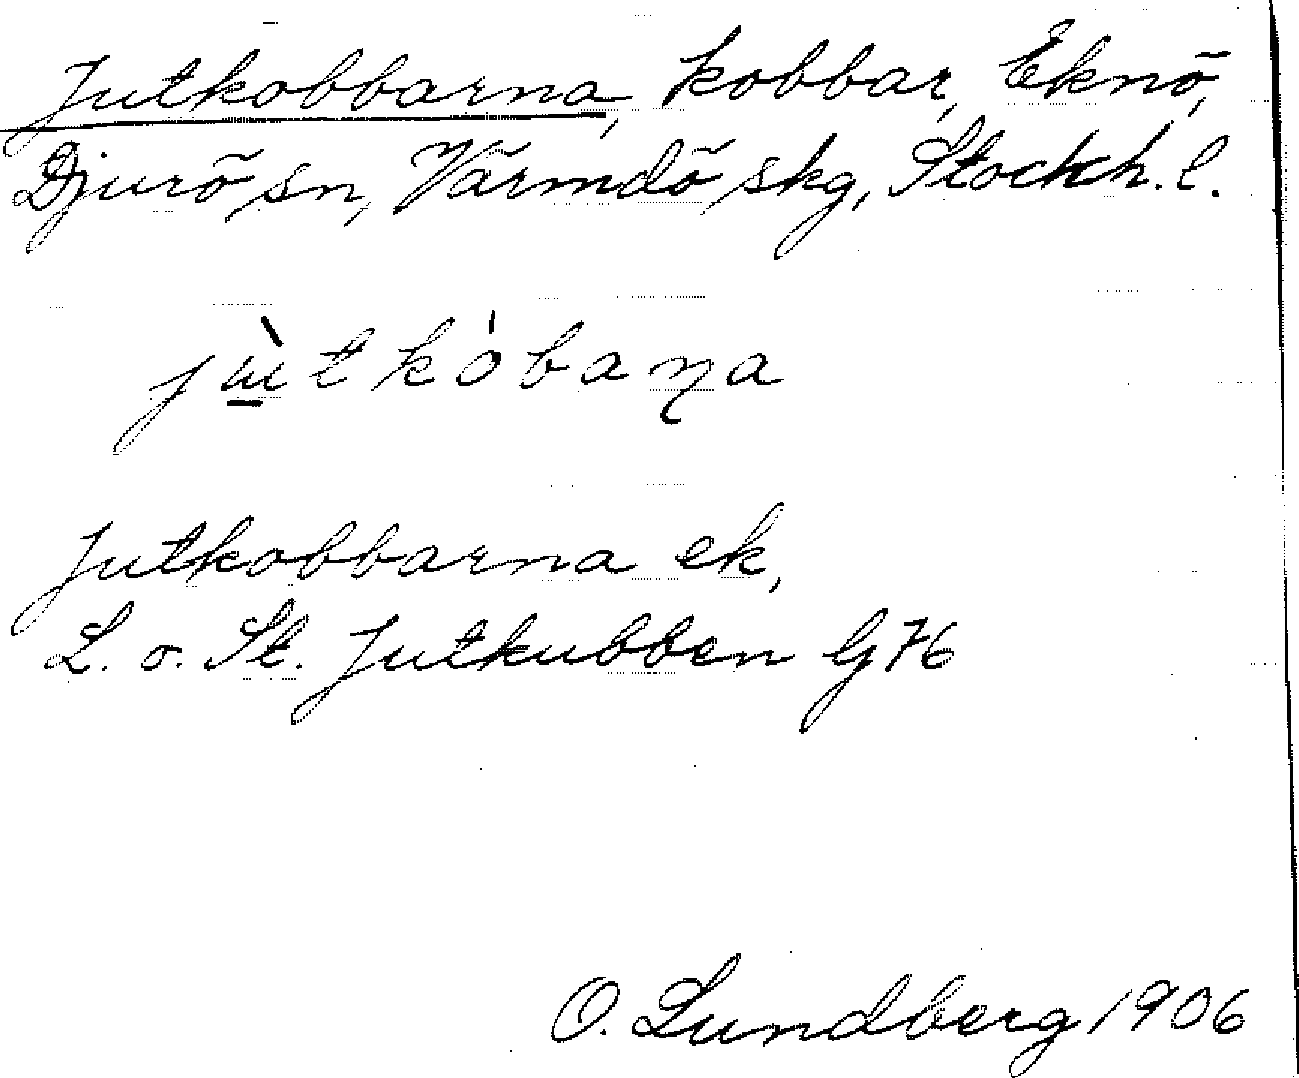 Jutkobbarna, kobbar, Eknö,
Djurö sn, Värmdö skg, Stockh. l.
jɯ̀tkȯbaɳa
Jutkobbarna ek,
L. o. St. Jutkubben G76
O. Lundberg 1906